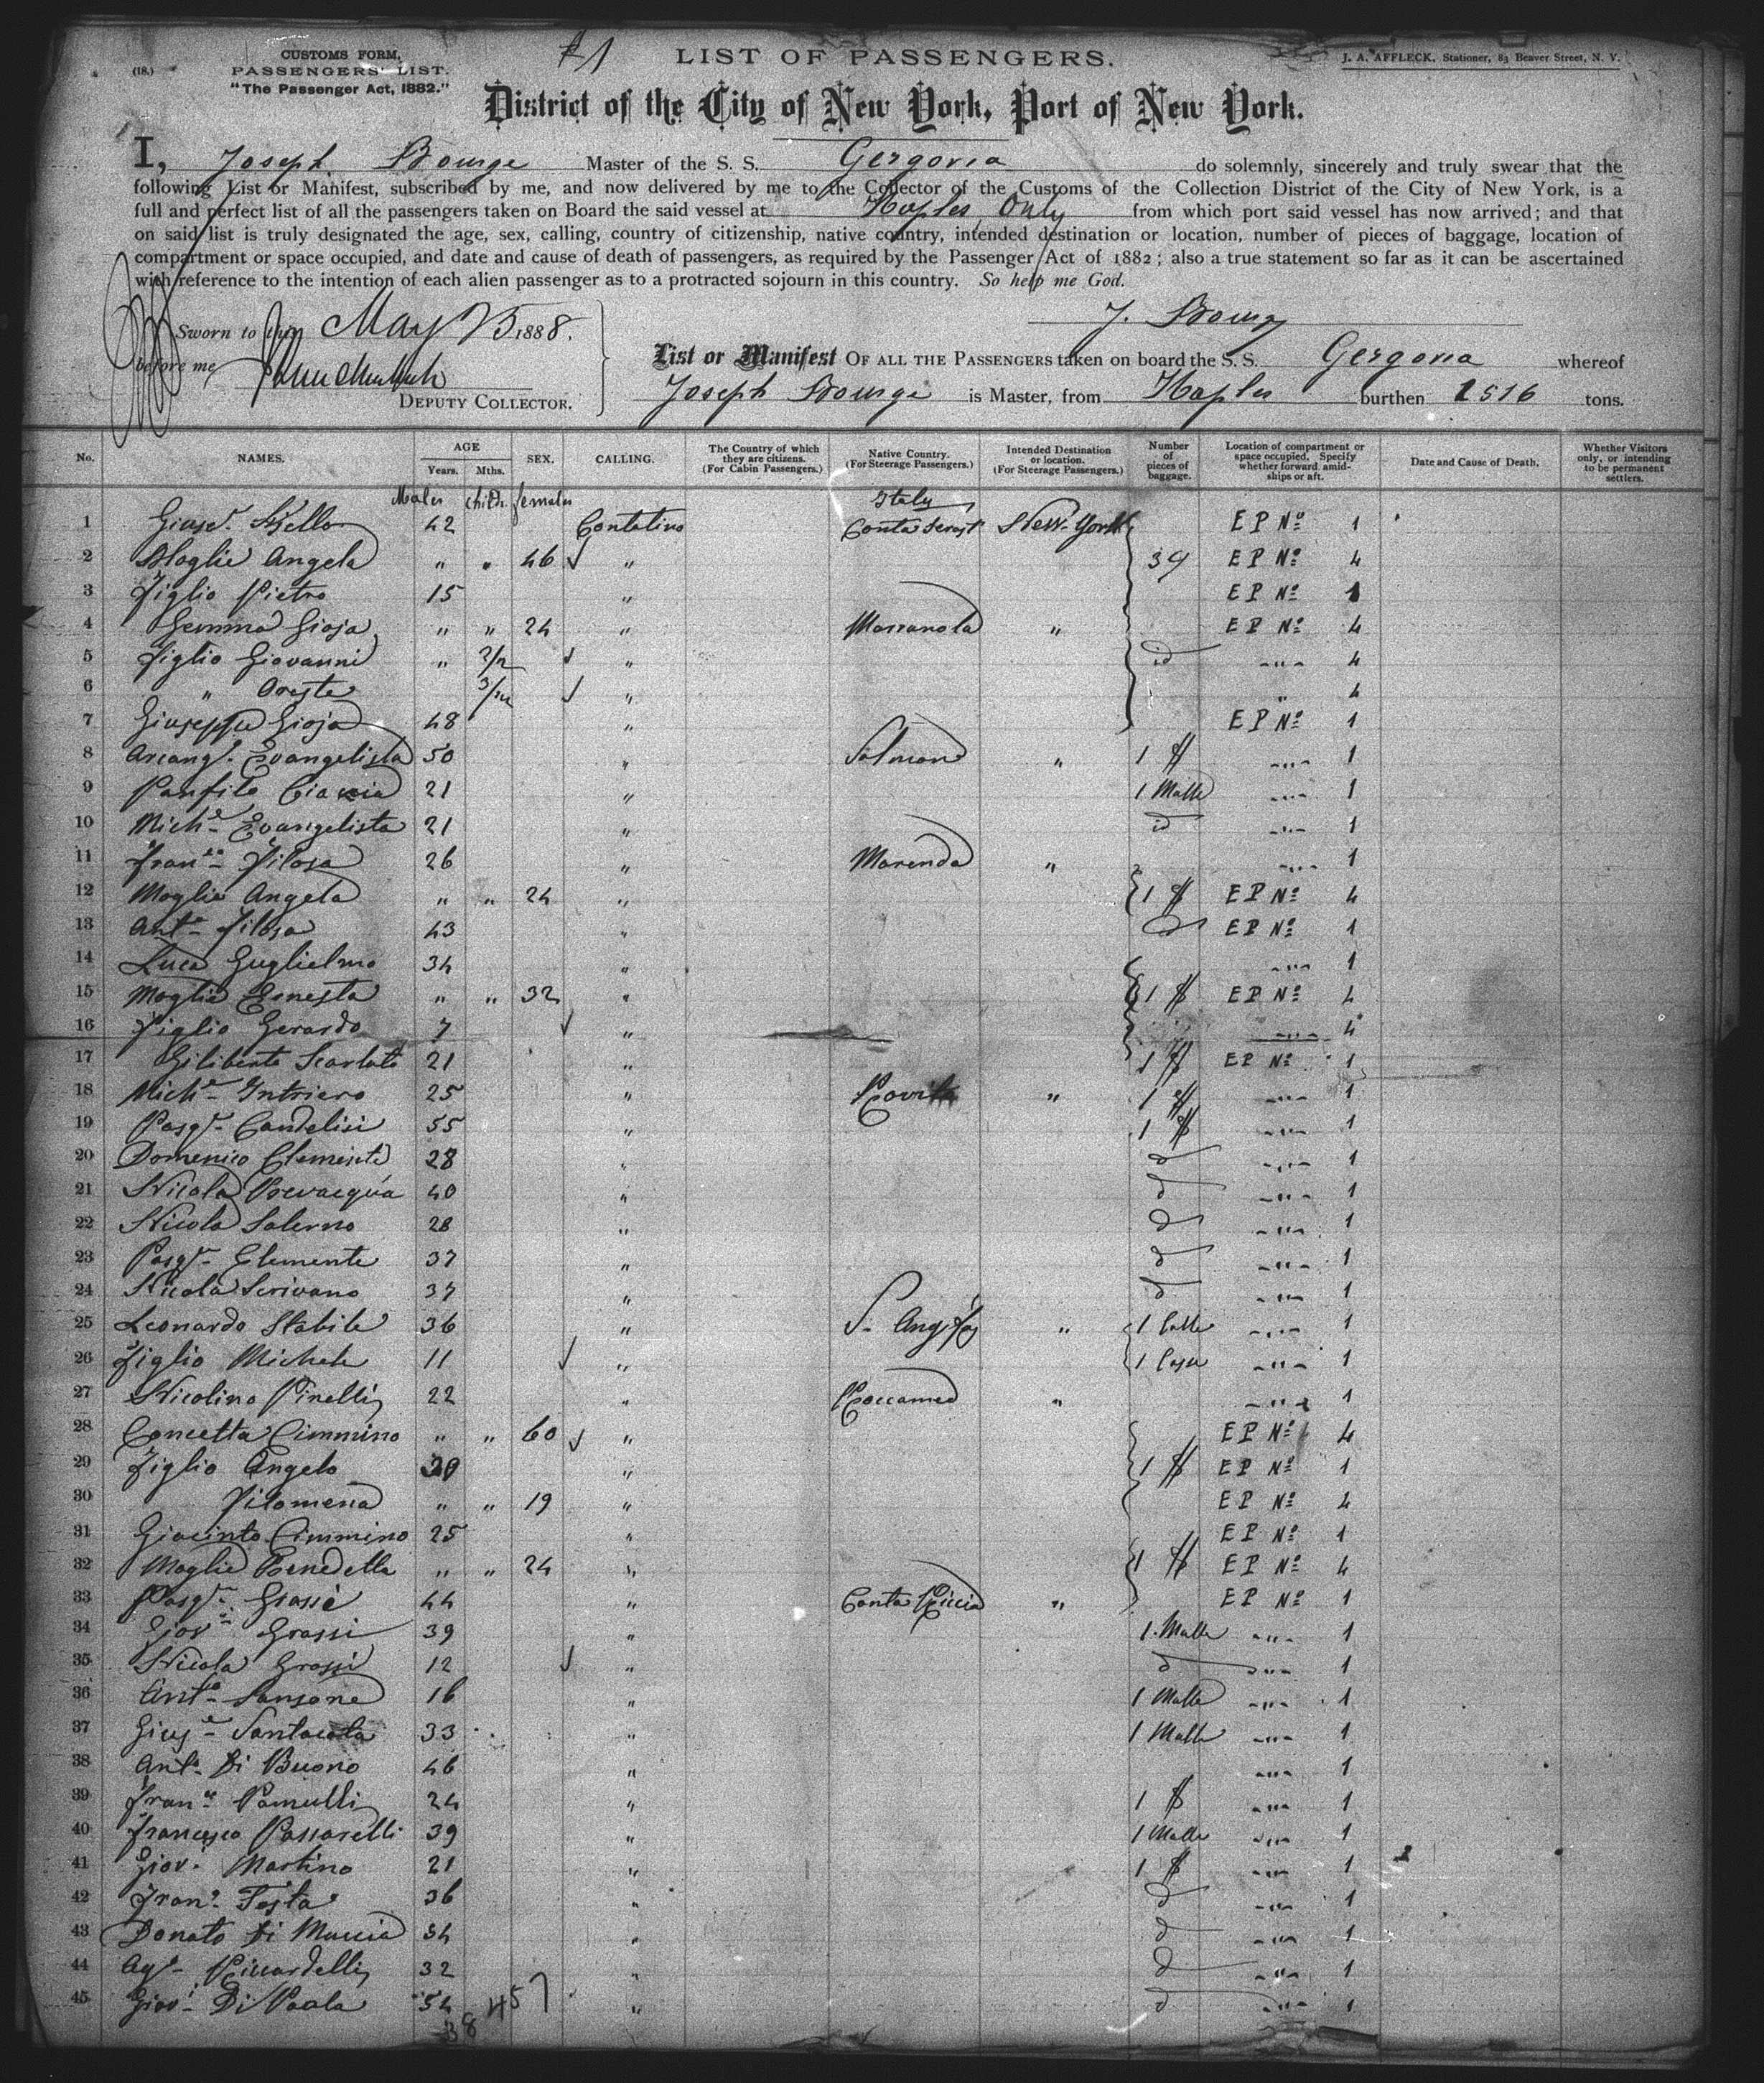 (18.)
CUSTOMS FORM,
PASSENGERS' LIST.
"The Passenger Act, 1882."
#1
LIST OF PASSENGERS.
J. A. AFFLECK, Stationer, 83 Beaver Street, N. Y.
District of the City of New York, Port of New York.
I, Joseph Bourge Master of the S. S. Gergovia do solemnly, sincerely and truly swear that the
following List or Manifest, subscribed by me, and now delivered by me to the Collector of the Customs of the Collection District of the City of New York, is a
full and perfect list of all the passengers taken on Board the said vessel at Naples Only from which port said vessel has now arrived; and that
on said list is truly designated the age, sex, calling, country of citizenship, native country, intended destination or location, number of pieces of baggage, location of
compartment or space occupied, and date and cause of death of passengers, as required by the Passenger Act of 1882; also a true statement so far as it can be ascertained
with reference to the intention of each alien passenger as to a protracted sojourn in this country. So help me God.
Sworn to this May 1888.
J. Bourge
before me,
DEPUTY COLLECTOR.
List or Manifest OF ALL THE PASSENGERS taken on board the S. S. Gergovia whereof
Joseph Bourge is Master, from Naples burthen 1516 tons.
No. NAMES. AGE Years. Mths. SEX. CALLING. The Country of which they are citizens. (For Cabin Passengers.) Native Country. (For Steerage Passengers.) Intended Destination or location. (For Steerage Passengers.) Number of pieces of baggage. Location of compartment or space occupied. Specify whether forward, amidships or aft. Date and Cause of Death. Whether Visitors only, or intending to be permanent settlers.
Males Child. females Italy
1 42 New-York EP No 1
2 Moglie Angela " " 46 " 39 EP No 4
3 Figlio Pietro 15 " EP No 1
4 Gemma Gioja " " 24 " " EP No 4
5 Figlio Giovanni " " id " 4
6 " Oreste 3/12 " " 4
7 Giuseppe Gioja 48 " EP No 1
8 Arcang. Evangelista 50 " " 1 " 1
9 Panfilo 21 " 1 Malle " 1
10 Mich. Evangelista 21 " id " 1
11 Fran. Filosa 26 " " " 1
12 Moglie Angela " " 24 " 1 EP No 4
13 Ant. Filosa 43 " EP No 1
14 Luca Guglielmo 34 " " 1
15 Moglie Ernesta " " 32 " 1 EP No 4
16 Figlio Gerardo 7 " " 4
17 Giliberto Scarlato 21 " 1 EP No 1
18 Mich. Intriero 25 " " 1 " 1
19 Pasq. Candelisi 55 " 1 " 1
20 Domenico Clemente 28 " d " 1
21 Nicola Bevacqua 40 " d " 1
22 Nicola Salerno 28 " d " 1
23 Pasq. Clemente 37 " d " 1
24 Nicola Scrivano 37 " d " 1
25 Leonardo Stabile 36 " " 1 " 1
26 Figlio Michele 11 " 1 " 1
27 Nicolino Pinelli 22 " " " 1
28 Concetta Cimmino " " 60 " EP No 4
29 Figlio Angelo 20 " 1 EP No 1
30 Filomena " " 19 " EP No 4
31 Giacinto Cimmino 25 " EP No 1
32 Moglie Benedetta " " 24 " 1 EP No 4
33 Pasq. Grassi 44 " " EP No 1
34 Giov. Grassi 39 " 1 Malle " 1
35 Nicola Grassi 12 " d " 1
36 Ant. Sansone 16 " 1 Malle " 1
37 33 " 1 Malle " 1
38 Ant. Di Buono 46 " " 1
39 Fran. 24 " 1 " 1
40 Francesco Passarelli 39 " 1 Malle " 1
41 Giov. Martino 21 " 1 " 1
42 Fran. Testa 36 " d " 1
43 Donato Di Muccia 34 " d " 1
44 Riccardelli 32 " d " 1
45 Giov. Di Paola 54 " d " 1
38 4 5 7